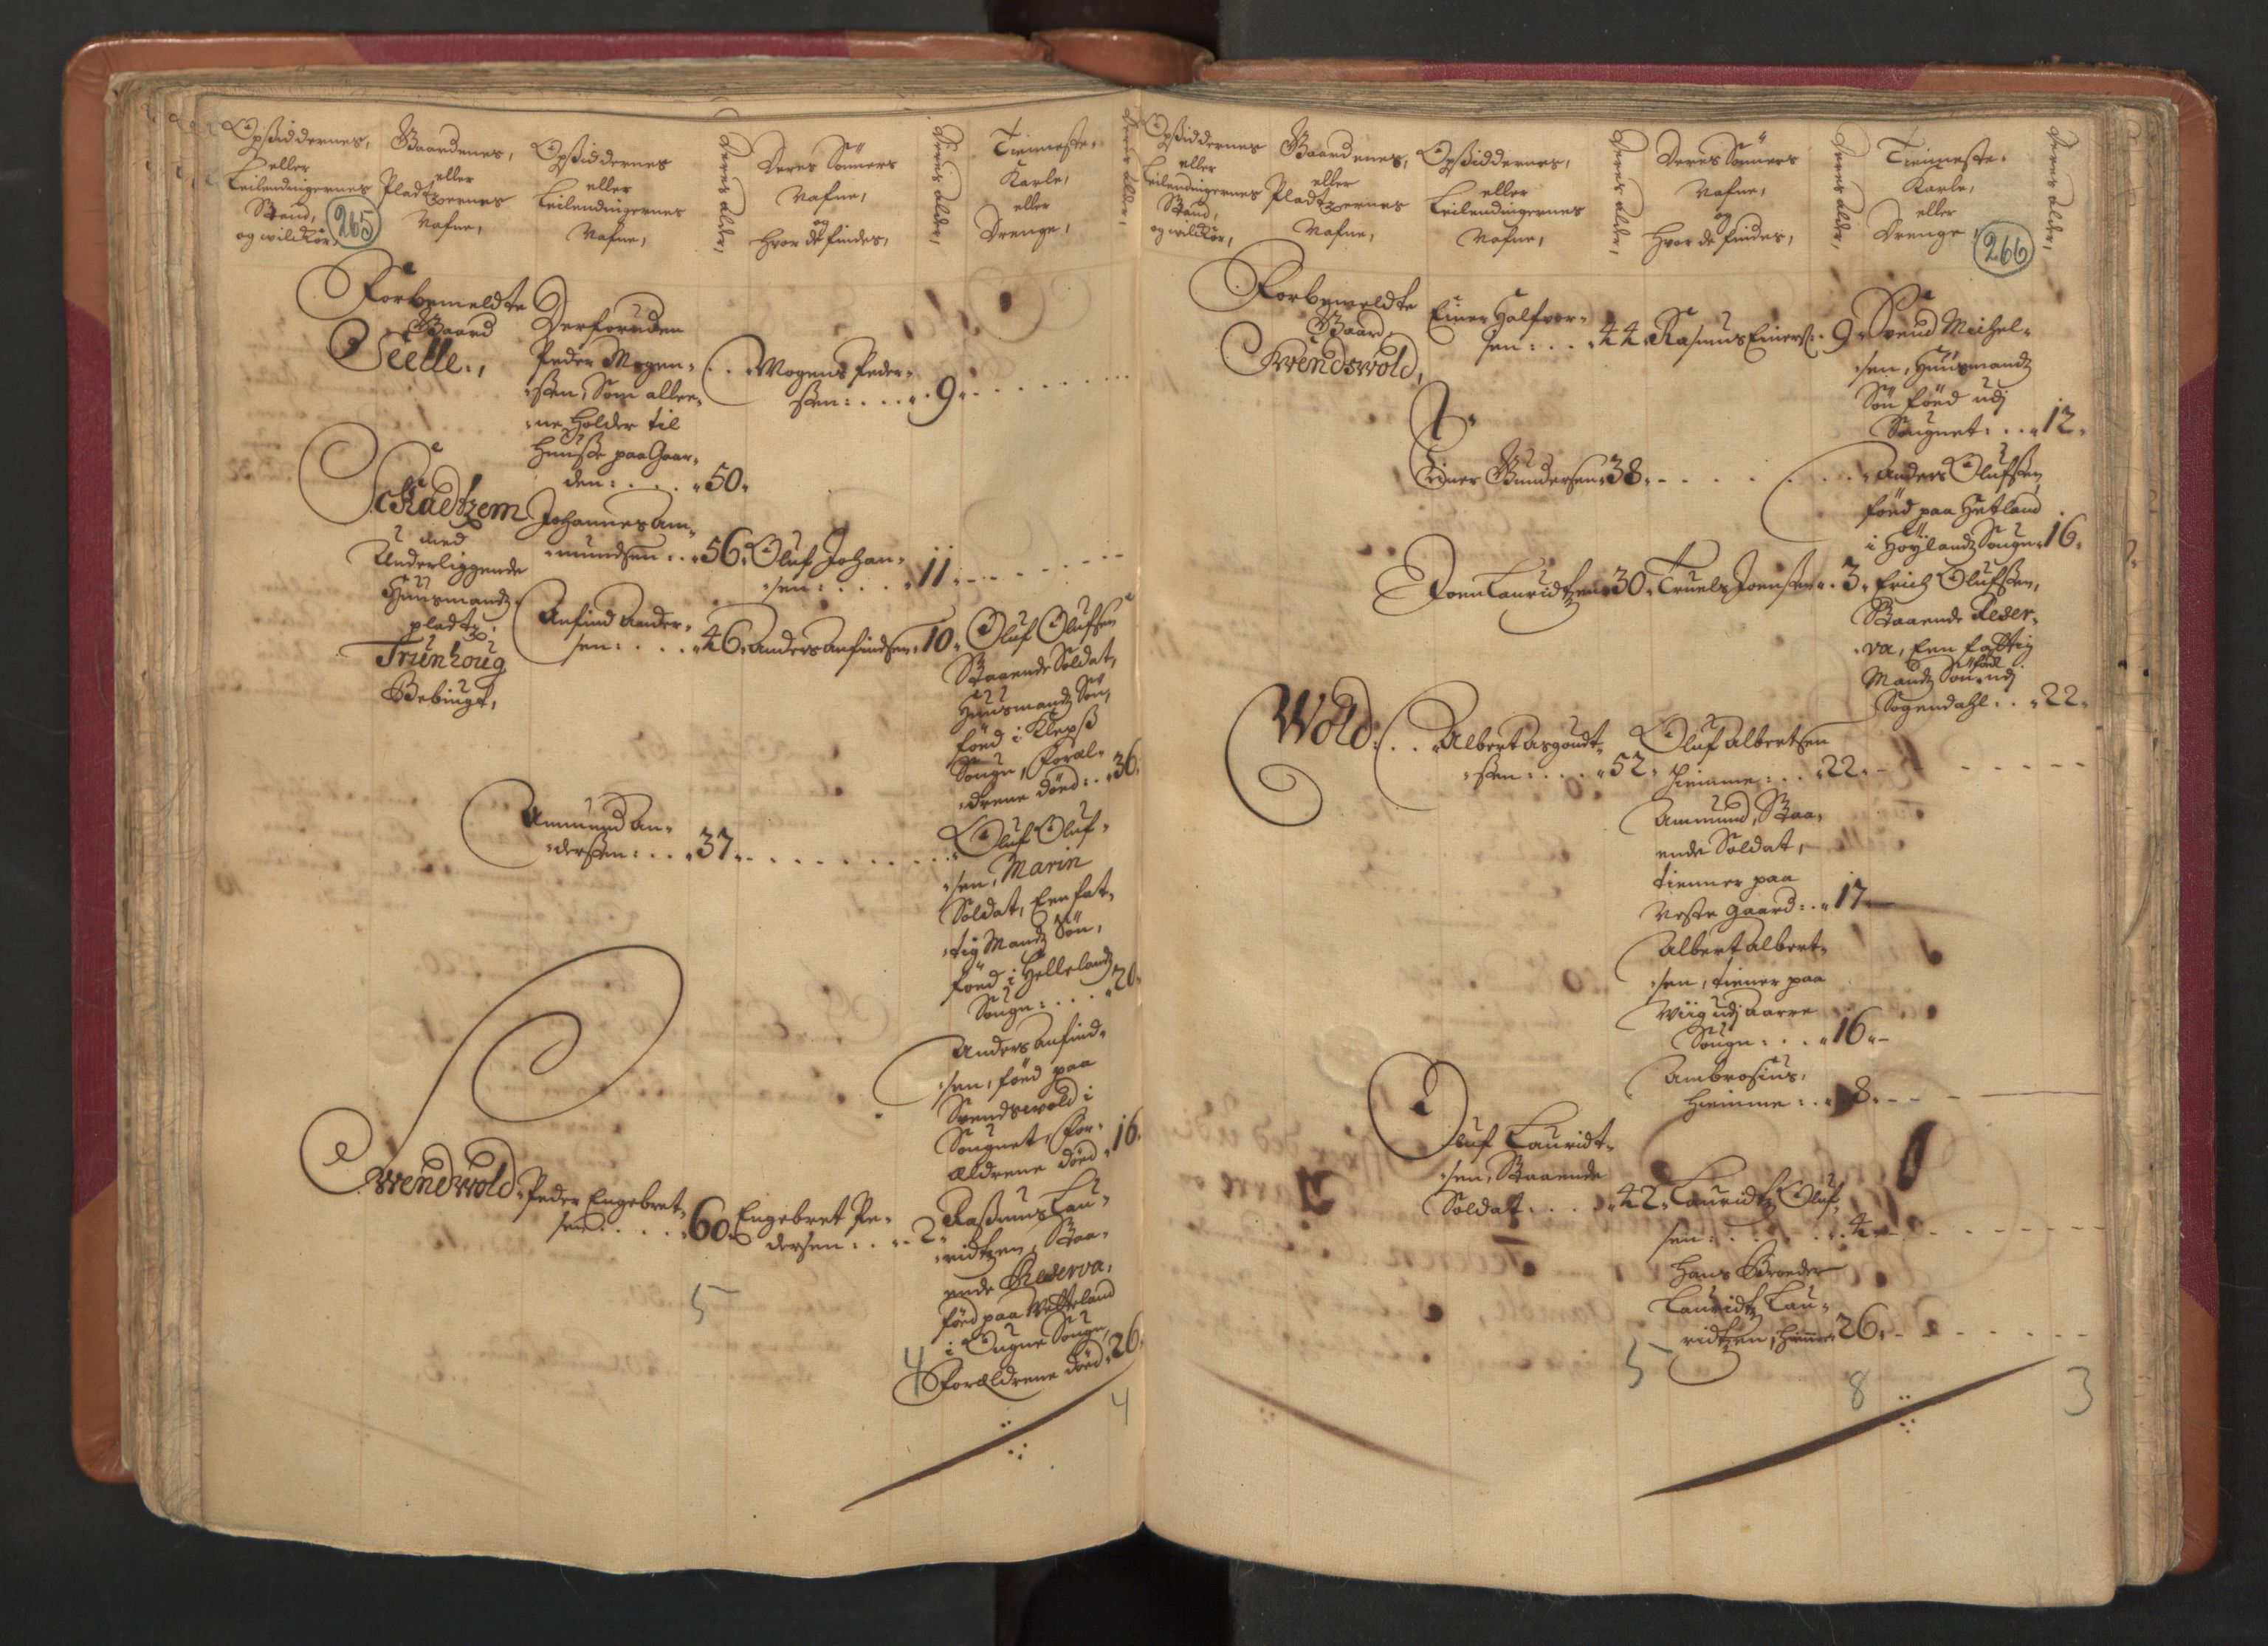 Opsiddernes,
eller
Leilendingernes
Stand,
og wilckor,
Gaardenes,
eller
Pladtzernes
Nafne,
Opsiddernes
eller
Leilendingernes
Nafne,
Deres alder,
Deres Sönners
Nafne,
og
Hvor de findes,
Deres alder,
Tienneste-
Karle,
eller
Drenge,
Deres alder,
265
Forbemeldte
Gaard
Seelle.,
Derforuden
Peder Mogen-
-ßen, Som allee-
-ne holder til
Huusße paa Gaar-
den: . . . „50„
Mogens Peder-
ßen: . . . „9„
Schadtzem
med
Underliggende
Huusmandz
pladtz,
Trünhoug
Bebÿugt,
Johannes Am-
-mundsen . . „56„
Oluf Johan-
-sen: . . . „11„
Anfind Ander-
sen: . . . „46„
Anders Anfindsen „10„
Oluf Olufsen
Staaende Soldat,
Huusmandz Sön,
föed i Klepß
Sougn, Foræl-
-drene döed: . „36„
Ammund An-
-derßen: . . „37„
Oluf Oluf-
-sen, Marin
Soldat, Een fat-
-tig Mandz Sön,
föed i Hellelandz
Sougn: . . . „20„
Anders Anfind-
-sen, föed paa
Svendswold i
Sougnet, For-
ældrene döed „16„
Swendswold
Peder Engebret-
sen: . . . „60„
Engebret Pe-
dersen: . . „2„
Raßmus Lau-
-ridtzen, Staa-
ende Reserva,
föed paa Metteland
i Ougne Sougn,
Forældrene döed „26„
5
4
4
Opsiddernes
eller
Leilendingernes
Stand,
og wilckor,
Gaardenes,
eller
Pladtzernes
Nafne,
Opsiddernes,
eller
Leilendingernes
Nafne,
Deres alder,
Deres Sönners
Nafne,
og
Hvor de findes,
Deres alder,
Tienneste-
Karle,
eller
Drenge,
Deres alder,
266
Forbemeldte
Gaard,
Swendswold,
Einer Halfvor-
sen: . . . „44„
Rasmus Einers: „9„
Svend Michel-
-sen, Huusmandz
Sön föed udj
Sougnet: . . „12„
Einer Gundersen „38„
Anders Olufßen
föed paa Hetland
i Höylandz Sougn „16„
Joen Lauridtzen „30„
Truels Joenßen „3„
Erich Olufßen,
Staaende Reser-
-va, Een fattig
Mandz Sön föed udj
Sogendahl: . . „22„
Wold:
Albert Asgoudt-
-ßen: . . . „52„
Oluf Albertsen
hiemme: . . „22„
Ammund, Staa-
ende Soldat,
tienner paa
Neste gaard: „17„
Albert Albert-
-sen, tiener paa
Wiig udj Aarre
Sougn: . . . „16„
Ambrosius,
hiemme: . „8„
Oluf Lauridt-
-sen, Staaende
Soldat . . . „42„
Lauridtz Oluf-
sen: . . . . „4„
Hans Broeder
Lauridtz Lau-
ridtzen, hiemme „26„
5
8
3